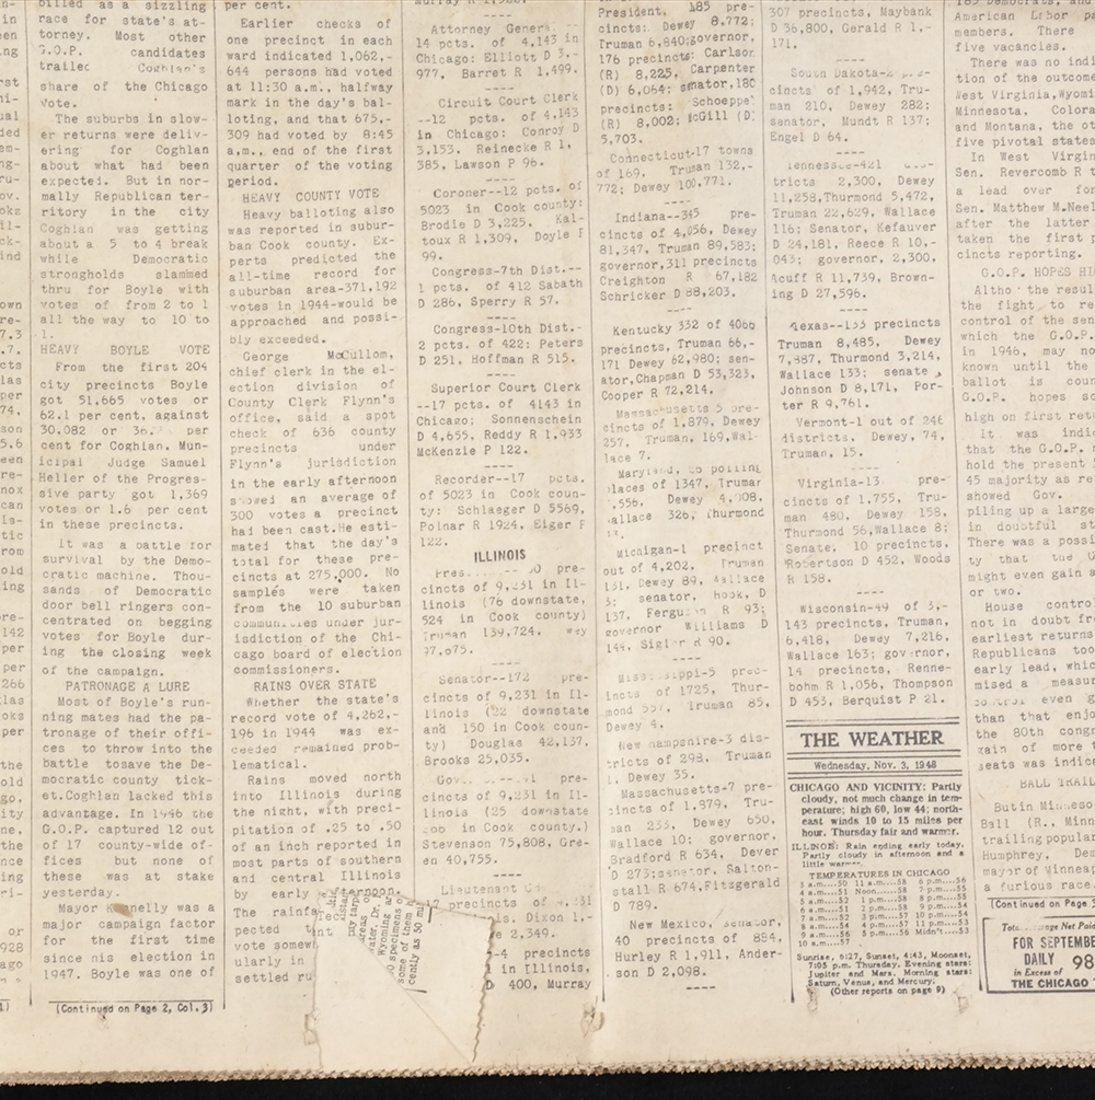 billed as a sizzling
race for state's at-
torney. Most other
G.O.P. candidates
trailed Coghlan's
share of the Chicago
vote.
The suburbs in slow-
er returns were deliv-
ering for Coghlan
about what had been
expected. But in nor-
mally Republican ter-
ritory in the city
Coghlan was getting
about a 5 to 4 break
while Democratic
strongholds slammed
thru for Boyle with
votes of from 2 to 1
all the way to 10 to
1.
HEAVY BOYLE VOTE
From the first 204
city precincts Boyle
got 51,665 votes or
62.1 per cent, against
30,082 or 36. per
cent for Coghlan. Mun-
icipal Judge Samuel
Heller of the Progres-
sive party got 1,369
votes or 1.6 per cent
in these precincts.
It was a battle for
survival by the Demo-
cratic machine. Thou-
sands of Democratic
door bell ringers con-
centrated on begging
votes for Boyle dur-
ing the closing week
of the campaign.
PATRONAGE A LURE
Most of Boyle's run-
ning mates had the pa-
tronage of their offi-
ces to throw into the
battle tosave the De-
mocratic county tick-
et.Coghlan lacked this
advantage. In 1946 the
G.O.P. captured 12 out
of 17 county-wide of-
fices but none of
these was at stake
yesterday.
Mayor Kennelly was a
major campaign factor
for the first time
since his election in
1947. Boyle was one of
(Continued on Page 2, Col. 3)
per cent.
Earlier checks of
one precinct in each
ward indicated 1,062,-
644 persons had voted
at 11:30 a.m., halfway
mark in the day's bal-
loting, and that 675,-
309 had voted by 8:45
a.m., end of the first
quarter of the voting
period.
HEAVY COUNTY VOTE
Heavy balloting also
was reported in subur-
ban Cook county. Ex-
perts predicted the
all-time record for
suburban area-371,192
votes in 1944-would be
approached and possi-
bly exceeded.
George McCullom,
chief clerk in the el-
ection division of
County Clerk Flynn's
office, said a spot
check of 636 county
precincts under
Flynn's jurisdiction
in the early afternoon
showed an average of
300 votes a precinct
had been cast.He esti-
mated that the day's
total for these pre-
cincts at 275,000. No
samples were taken
from the 10 suburban
communities under jur-
isdiction of the Chi-
cago board of election
commissioners.
RAINS OVER STATE
Whether the state's
record vote of 4,262,-
196 in 1944 was ex-
ceeded remained prob-
lematical.
Rains moved north
into Illinois during
the night, with preci-
pitation of .25 to .50
of an inch reported in
most parts of southern
and central Illinois
by early afternoon.
The
pected
vote
ularly in
settled
Attorney General
14 pcts. of 4,143 in
Chicago: Elliott D 3,-
977, Barret R 1,499.
----
Circuit Court Clerk
--12 pcts. of 4,143
in Chicago: Conroy D
3,153. Reinecke R 1,
385, Lawson P 96.
----
Coroner--12 pcts. of
5023 in Cook county:
Brodie D 3,225, Kal-
toux R 1,309, Doyle P
99.
Congress-7th Dist.--
1 pcts. of 412 Sabath
D 286, Sperry R 57.
----
Congress-10th Dist.-
2 pcts. of 422: Peters
D 251, Hoffman R 515.
----
Superior Court Clerk
--17 pcts. of 4143 in
Chicago; Sonnenschein
D 4,655, Reddy R 1,933
McKenzie P 122.
----
Recorder--17 pcts.
of 5023 in Cook coun-
ty: Schlaeger D 5569,
Polnar R 1924, Eiger P
122.
ILLINOIS
pre-
cincts of 9,231 in Il-
linois (76 downstate,
524 in Cook county)
Truman 139,724.
97,075.
----
Senator--172 pre-
cincts of 9,231 in Il-
linois (22 downstate
and 150 in Cook coun-
ty) Douglas 42,137,
Brooks 25,035.
----
pre-
cincts of 9,231 in Il-
linois (25 downstate
in Cook county.)
Stevenson 75,808, Gre-
en 40,755.
----
Lieutenant
precincts of
Dixon 1,-
2,349.
precincts
in Illinois,
D 400, Murray
President, 485 pre-
cincts: Dewey 8,772;
Truman 6,840;governor,
176 precincts: Carlson
(R) 8,225, Carpenter
(D) 6,064; senator,180
precincts: Schoeppel
(R) 8,002; McGill (D)
5,703.
Connecticut-17 towns
of 169, Truman 132,-
772; Dewey 100,771.
----
Indiana--345 pre-
cincts of 4,056, Dewey
81,347, Truman 89,583;
governor,311 precincts
Creighton R 67,182
Schricker D 88,203.
----
Kentucky 332 of 4066
precincts, Truman 66,-
171 Dewey 62,980; sen-
ator,Chapman D 53,323,
Cooper R 72,214.
Massachusetts 5 pre-
cincts of 1,879, Dewey
257, Truman, 169,Wal-
lace 7.
Maryland, 26 polling
places of 1347, Truman
,556, Dewey 4,008,
Wallace 326, Thurmond
Michigan-1 precinct
out of 4,202, Truman
131, Dewey 89, Wallace
3; senator, Hook, D
137, Ferguson R 93;
governor Williams D
144, Sigler R 90.
----
Mississippi-5 prec-
incts of 1725, Thur-
mond 557, Truman 85,
Dewey 4.
New Hampshire-3 dis-
tricts of 298, Truman
Dewey 35.
Massachusetts-7 pre-
cincts of 1,879, Tru-
man 233, Dewey 650,
Wallace 10; governor,
Bradford R 634, Dever
D 273;senator, Salton-
stall R 674,Fitzgerald
D 789.
New Mexico, senator,
40 precincts of 884,
Hurley R 1,911, Ander-
son D 2,098.
----
307 precincts, Maybank
D 36,800, Gerald R 1,-
171.
----
South Dakota-2 pre-
cincts of 1,942, Tru-
man 210, Dewey 282;
senator, Mundt R 137;
Engel D 64.
----
Tennessee-421 dis-
tricts 2,300, Dewey
11,258,Thurmond 5,472,
Truman 22,629, Wallace
116; Senator, Kefauver
D 24,181, Reece R 10,-
043; governor, 2,300,
Acuff R 11,739, Brown-
ing D 27,596.
----
Texas--133 precincts
Truman 8,485, Dewey
7,887, Thurmond 3,214,
Wallace 133; senate,
Johnson D 8,171, Por-
ter R 9,761.
Vermont-1 out of 246
districts, Dewey, 74,
Truman, 15.
----
Virginia-13 pre-
cincts of 1,755, Tru-
man 480, Dewey 158,
Thurmond 56,Wallace 8;
Senate, 10 precincts,
Robertson D 452, Woods
R 158.
----
Wisconsin-49 of 3,-
143 precincts, Truman,
6,418, Dewey 7,216,
Wallace 163; governor,
14 precincts, Renne-
bohm R 1,056, Thompson
D 453, Berquist P 21.
THE WEATHER
Wednesday, Nov. 3, 1948
CHICAGO AND VICINITY: Partly
cloudy, not much change in tem-
perature; high 60, low 44; north-
east winds 10 to 15 miles per
hour. Thursday fair and warmer.
ILLINOIS: Rain ending early today,
Partly cloudy in afternoon and a
little warmer.
TEMPERATURES IN CHICAGO
3 a.m....50 11 a.m....58 6 p.m....56
4 a.m....51 Noon......58 7 p.m....55
5 a.m....52 1 p.m....58 8 p.m....55
6 a.m....51 2 p.m....58 9 p.m....54
7 a.m....52 3 p.m....57 10 p.m....54
8 a.m....54 4 p.m....57 11 p.m....53
9 a.m....56 5 p.m....56 Midn't....53
10 a.m....57
Sunrise, 6:27, Sunset, 4:43, Moonset,
7:05 p.m. Thursday, Evening stars:
Jupiter and Mars. Morning stars:
Saturn, Venus, and Mercury.
(Other reports on page 9)
American Labor
members. There
five vacancies.
There was no
tion of the outcome
West Virginia,
Minnesota,
and Montana, the
five pivotal states
In West
Sen. Revercomb R
a lead over
Sen. Matthew M.
after the latter
taken the first
cincts reporting.
G.O.P. HOPES
Altho the
the fight to
control of the
which the G.O.P.
in 1946, may
known until the
ballot is
G.O.P. hopes
high on first
It was
that the G.O.P.
hold the present
45 majority as
showed Gov.
piling up a large
in doubtful
There was a
ty that the
might even gain a
or two.
House
not in doubt
earliest returns
Republicans
early lead,
mised a
control even
than that
the 80th
gain of more
seats was
BALL
Butin
Ball (R.,
trailing
Humphrey,
mayor of
a furious race.
(Continued on Page
Net Paid
FOR SEPTEMBE
DAILY 98
in Excess of
THE CHICAGO